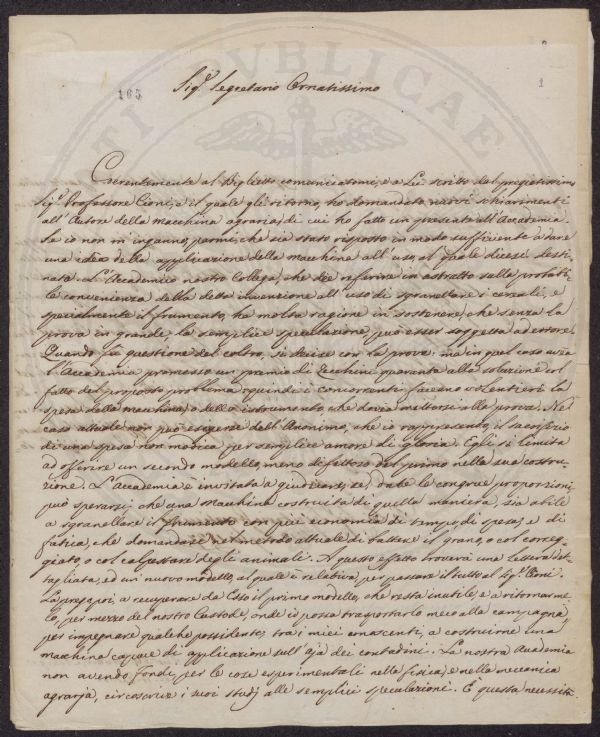 165
1
Sig.r Segretario Ornatissimo
Coerentemente al Biglietto comunicatomi, e a Lei scritto dal pregiatissimo
Sig.r Professore Cioni, e il quale gli ritorno, ho domandato nuovi schiarimenti
all'Autore della macchina agraria, di cui ho fatto un presente all'Accademia.
Se io non m'inganno, parmi, che sia stato risposto in modo sufficiente a dare
una idea della applicazione della macchina all'uso, al quale dicesi desti-
nata. L'Accademico nostro Collega, che dee referire in astratto sulla probabi-
le convenienza della detta invenzione all'uso di sgranellare i cereali, e
specialmente il frumento, ha molta ragione in sostenere, che senza la
prova in grande, la semplice speculazione può esser soggetta ad errore.
Quando fu questione del coltro, si decise con la prova: ma in quel caso avea
l'Accademia promesso un premio di Zecchini quaranta alla soluzione col
fatto del proposto problema, quindi i concorrenti facevano volentieri la
spesa della macchina, o dello istrumento, che dovea mettersi alla prova. Nel
caso attuale non può esigersi dall'Anonimo, che io rappresento, il sacrifizio
di una spesa non modica per semplice amore di gloria. Egli si limita
ad offerire un secondo modello, meno difettoso del primo nella sua costru-
zione. L'Accademia è invitata a giudicare, se, date le congrue proporzioni,
può sperarsi, che una Macchina costruita di quella maniera, sia abile
a sgranellare il frumento con più economia di tempo, di spesa, e di
fatica, che domandare nel metodo attuale di battere il grano, o col coreg-
giato, o col calpestare degli animali. A questo effetto troverà una lettera det-
tagliata, ed un nuovo modello, al quale è relativa, per passare il tutto al Sig.r Cioni.
La prego poi, a recuperare da Esso il primo modello, che resta inutile, e a ritornarme-
lo, per mezzo del nostro Custode, onde io possa trasportarlo meco alla campagna
per impegnare qualche possidente, tra i miei conoscenti, a costruirne una
macchina capace di applicazione sull'aja dei contadini. La nostra Accademia
non avendo fondi per le cose esperimentali nella fisica, e nella meccanica
agraria, circoscrive i suoi studj alle semplici speculazioni. È questa necessità